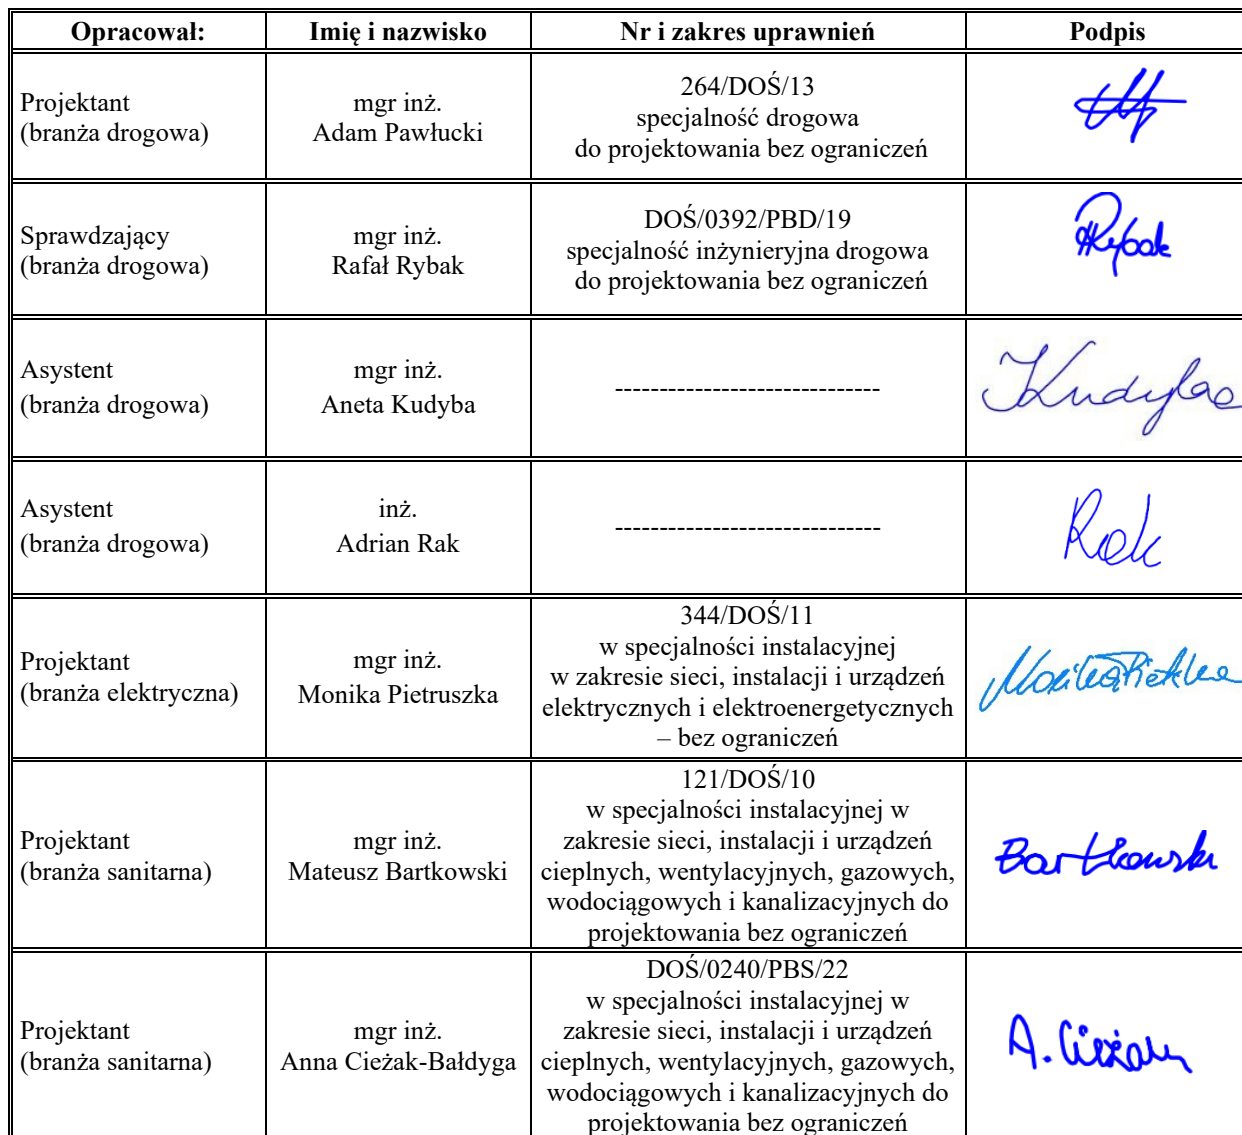 Opracował: Imię i nazwisko Nr i zakres uprawnień Podpis
Projektant
(branża drogowa)
mgr inż.
Adam Pawłucki
264/DOŚ/13
specjalność drogowa
do projektowania bez ograniczeń
Sprawdzający
(branża drogowa)
mgr inż.
Rafał Rybak
DOŚ/0392/PBD/19
specjalność inżynieryjna drogowa
do projektowania bez ograniczeń
Rybak
Asystent
(branża drogowa)
mgr inż.
Aneta Kudyba
------------------------------
Kudyba
Asystent
(branża drogowa)
inż.
Adrian Rak
------------------------------
Rak
Projektant
(branża elektryczna)
mgr inż.
Monika Pietruszka
344/DOŚ/11
w specjalności instalacyjnej
w zakresie sieci, instalacji i urządzeń
elektrycznych i elektroenergetycznych
– bez ograniczeń
Projektant
(branża sanitarna)
mgr inż.
Mateusz Bartkowski
121/DOŚ/10
w specjalności instalacyjnej w
zakresie sieci, instalacji i urządzeń
cieplnych, wentylacyjnych, gazowych,
wodociągowych i kanalizacyjnych do
projektowania bez ograniczeń
Bartkowski
Projektant
(branża sanitarna)
mgr inż.
Anna Cieżak-Bałdyga
DOŚ/0240/PBS/22
w specjalności instalacyjnej w
zakresie sieci, instalacji i urządzeń
cieplnych, wentylacyjnych, gazowych,
wodociągowych i kanalizacyjnych do
projektowania bez ograniczeń
A. Cieżak